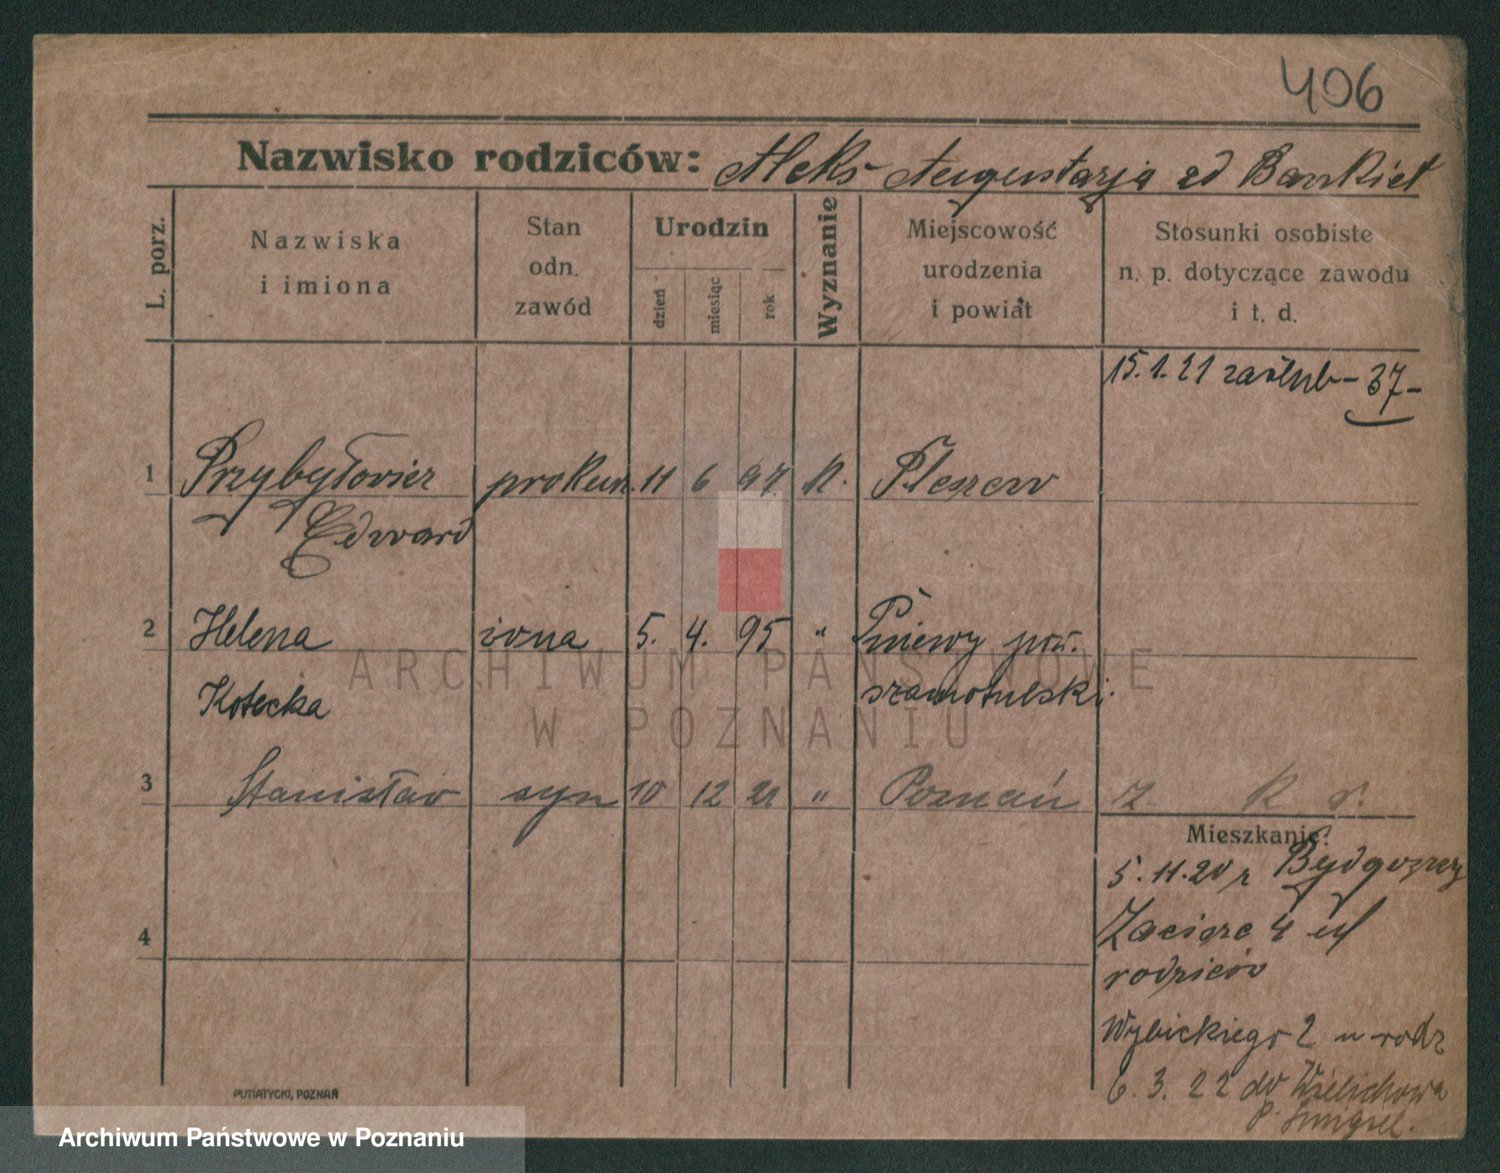 406
Nazwisko rodziców: Aleks Augustazja zd Bankiet
L. porz.
Nazwiska
i imiona
Stan
odn.
zawód
Urodzin
dzień
miesiąc
rok
Wyznanie
Miejscowość
urodzenia
i powiat
Stosunki osobiste
n. p. dotyczące zawodu
i t. d.
15.1.21 zaślub - 37 -
1 Przybyłowicz prokur. 11 6 97 K. Pleszew
Edward
2 Helena żona 5. 4. 95 " Pniewy pow.
Kotecka szamotulski.
3 Stanisław syn 10 12 21 " Poznań
Mieszkanie:
5.11.20 z Bydgoszczy
4
Zacisze 4
rodziców
Wybickiego 2 u rodz
6.3.22 do Wielichowa
p. Śmigiel.
PUTIATYCKI, POZNAŃ
ARCHIWUM PAŃSTWOWE
W POZNANIU
Archiwum Państwowe w Poznaniu